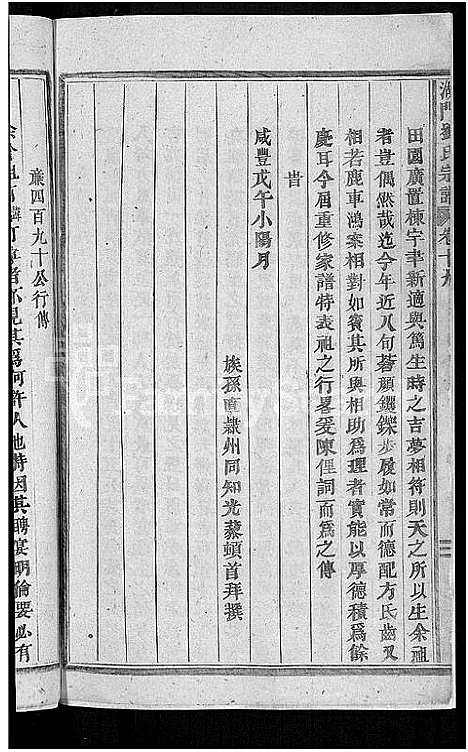 劉氏宗譜 卷十九
田園廣置棟宇聿新適與篤生時之吉夢相符則天之所以生余祖
者豈偶然哉迄今年近八旬蒼顏鑠步履如常而德配方氏齒又
相若鹿車鴻案相對如賓其所與相助爲理者實能以厚德積爲餘
慶耳今屆重修家譜特表祖之行畧爰陳俚詞而爲之傳
族孫直隸州同知光蒙頓首拜撰
旹
咸豐戊午小陽月
廉四百九十公行傳
者不見其爲何許人也特因其聘宴明倫要必有